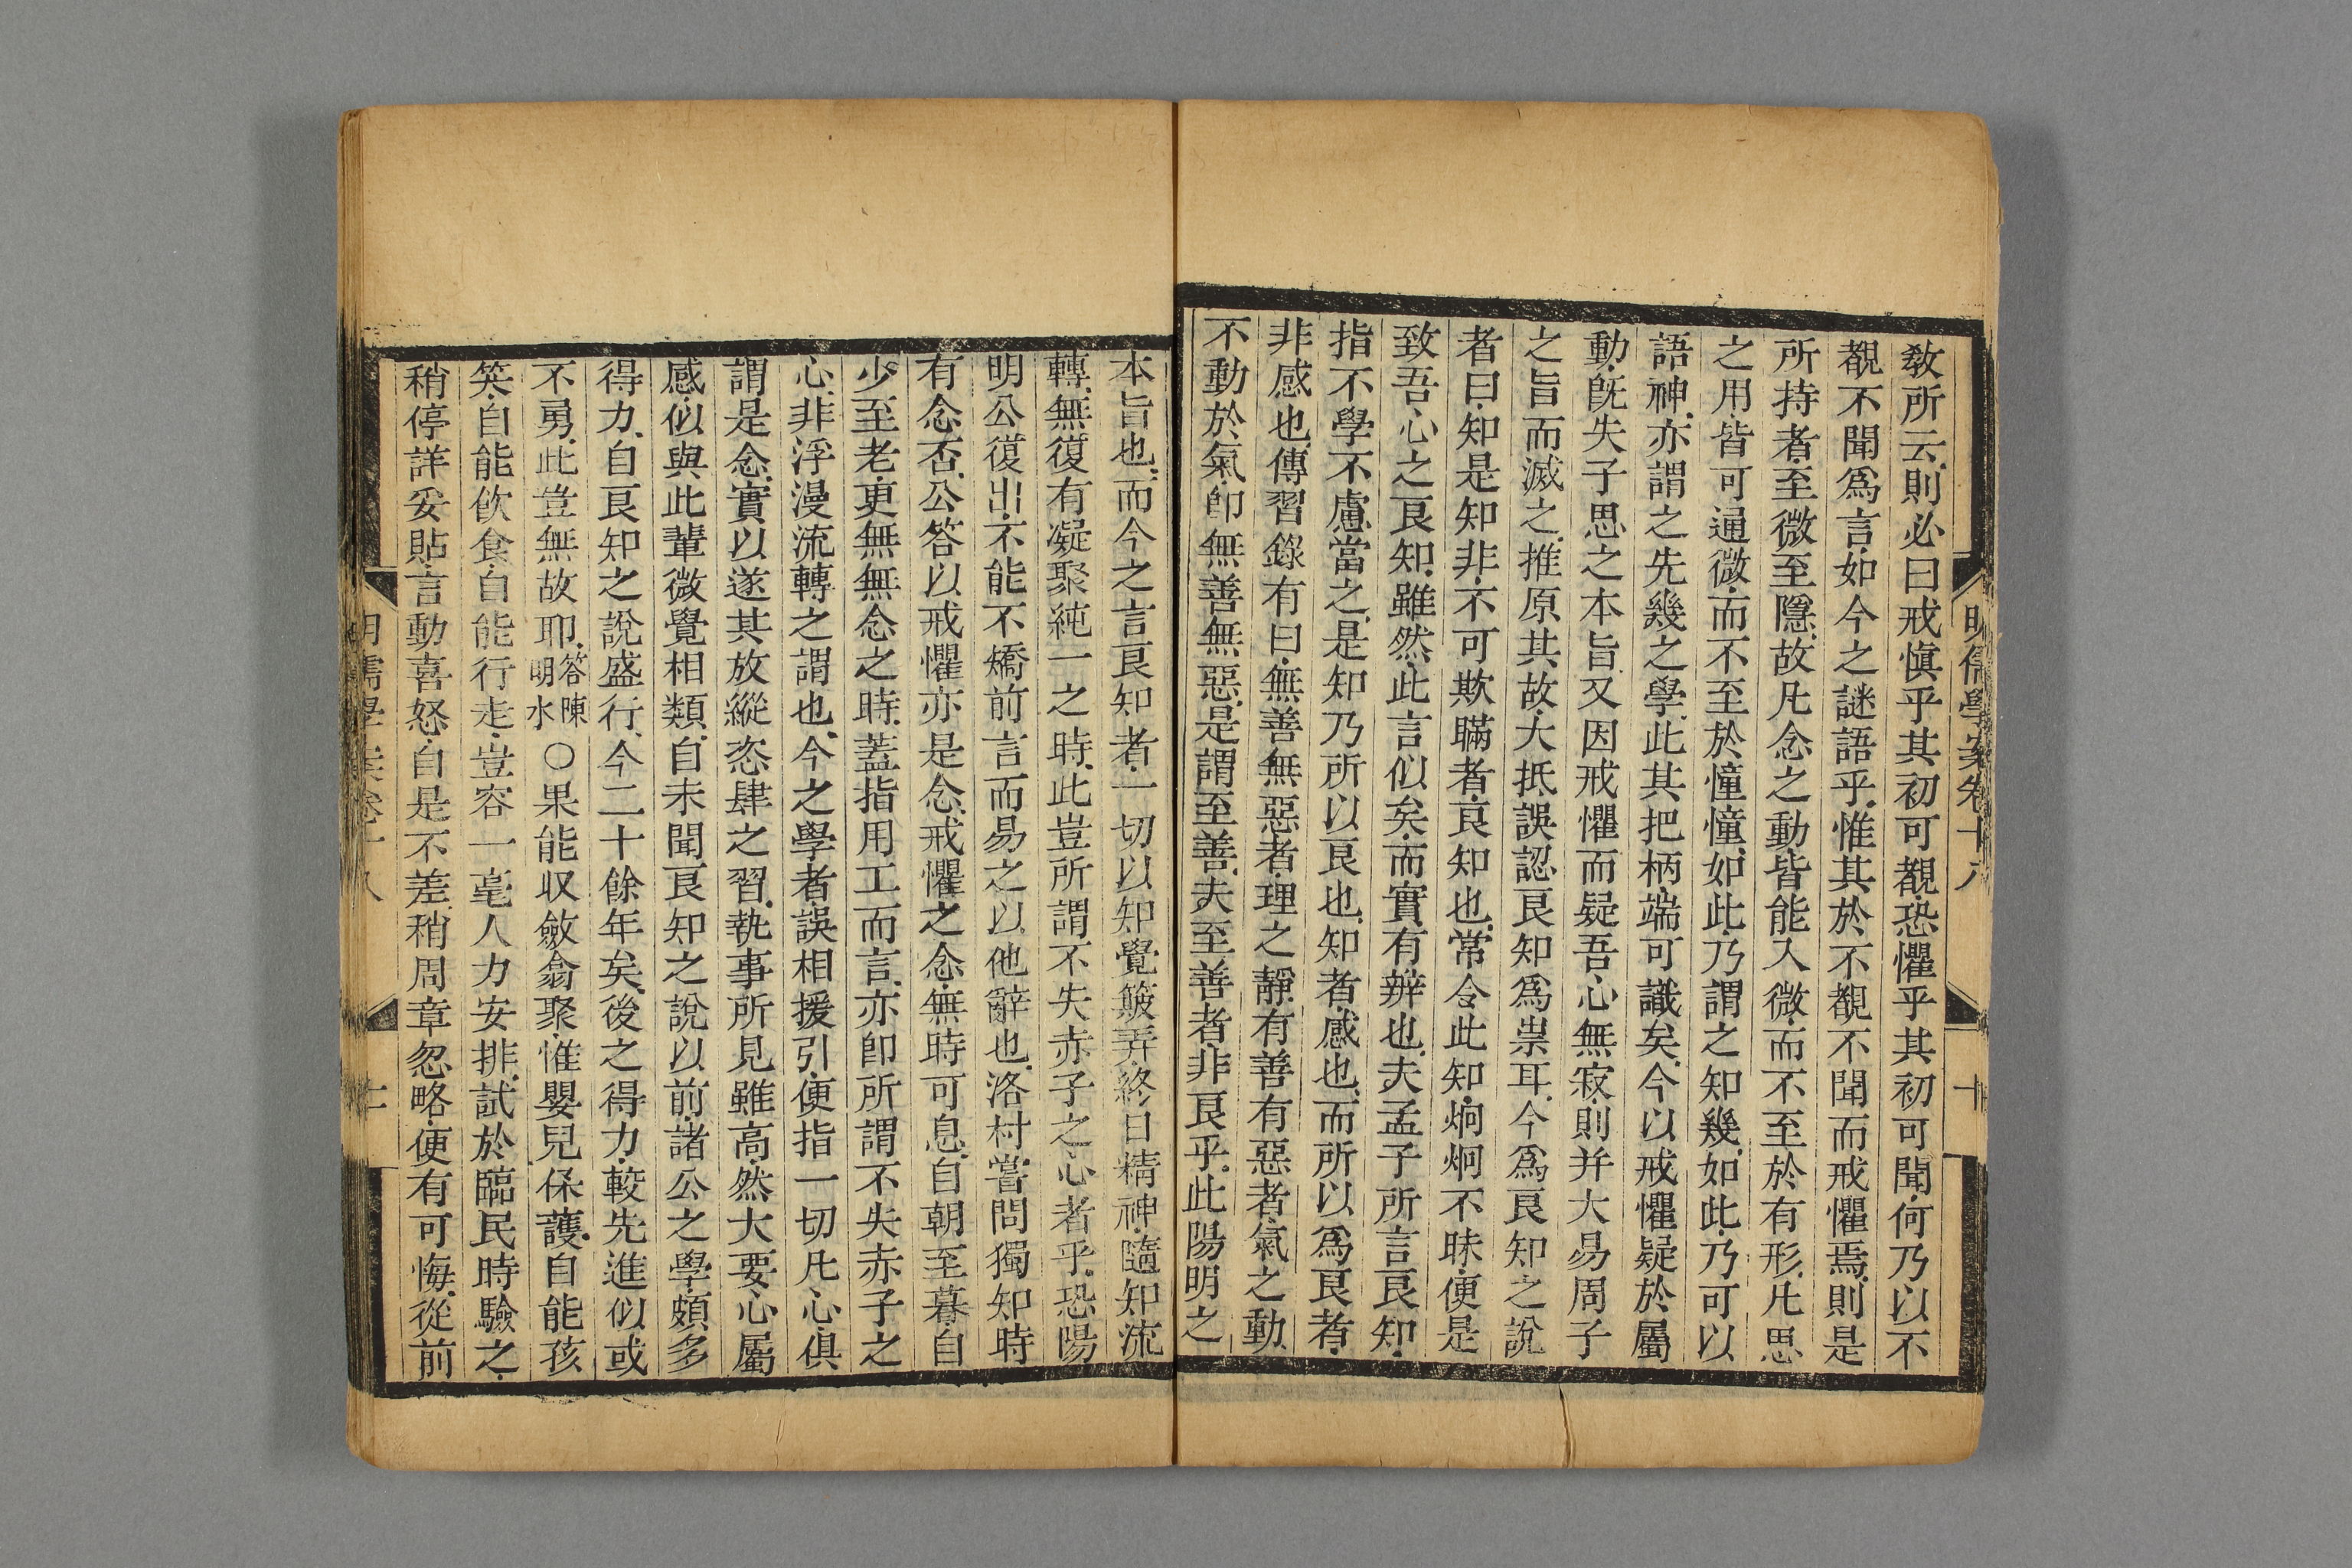 明儒學案卷十八
十
教所云則必曰戒愼乎其初可覩恐懼乎其初可聞何乃以不
覩不聞爲言如今之謎語乎惟其於不覩不聞而戒懼焉則是
所持者至微至隱故凡念之動皆能入微而不至於有形凡思
之用皆可通微而不至於憧憧如此乃謂之知幾如此乃可以
語神亦謂之先幾之學此其把柄端可識矣今以戒懼疑於屬
動旣失子思之本旨又因戒懼而疑吾心無寂則并大易周子
之旨而滅之推原其故大抵誤認良知爲祟耳今爲良知之說
者曰知是知非不可欺瞞者良知也常令此知炯炯不昧便是
致吾心之良知雖然此言似矣而實有辨也夫孟子所言良知
指不學不慮當之是知乃所以良也知者感也而所以爲良者
非感也傳習錄有曰無善無惡者理之靜有善有惡者氣之動
不動於氣卽無善無惡是謂至善夫至善者非良乎此陽明之
本旨也而今之言良知者一切以知覺簸弄終日精神隨知流
轉無復有凝聚純一之時此豈所謂不失赤子之心者乎恐陽
明公復出不能不矯前言而易之以他辭也洛村嘗問獨知時
有念否公答以戒懼亦是念戒懼之念無時可息自朝至暮自
少至老更無無念之時蓋指用工而言亦卽所謂不失赤子之
心非浮漫流轉之謂也今之學者誤相援引便指一切凡心俱
謂是念實以遂其放縱恣肆之習執事所見雖高然大要心屬
感似與此輩微覺相類自未聞良知之說以前諸公之學頗多
得力自良知之說盛行今二十餘年矣後之得力較先進似或
不勇此豈無故耶答陳明水○果能收斂翕聚惟嬰兒保護自能孩
笑自能飮食自能行走豈容一毫人力安排試於臨民時驗之
稍停詳妥貼言動喜怒自是不差稍周章忽略便有可悔從前
明儒學案卷十八
十一